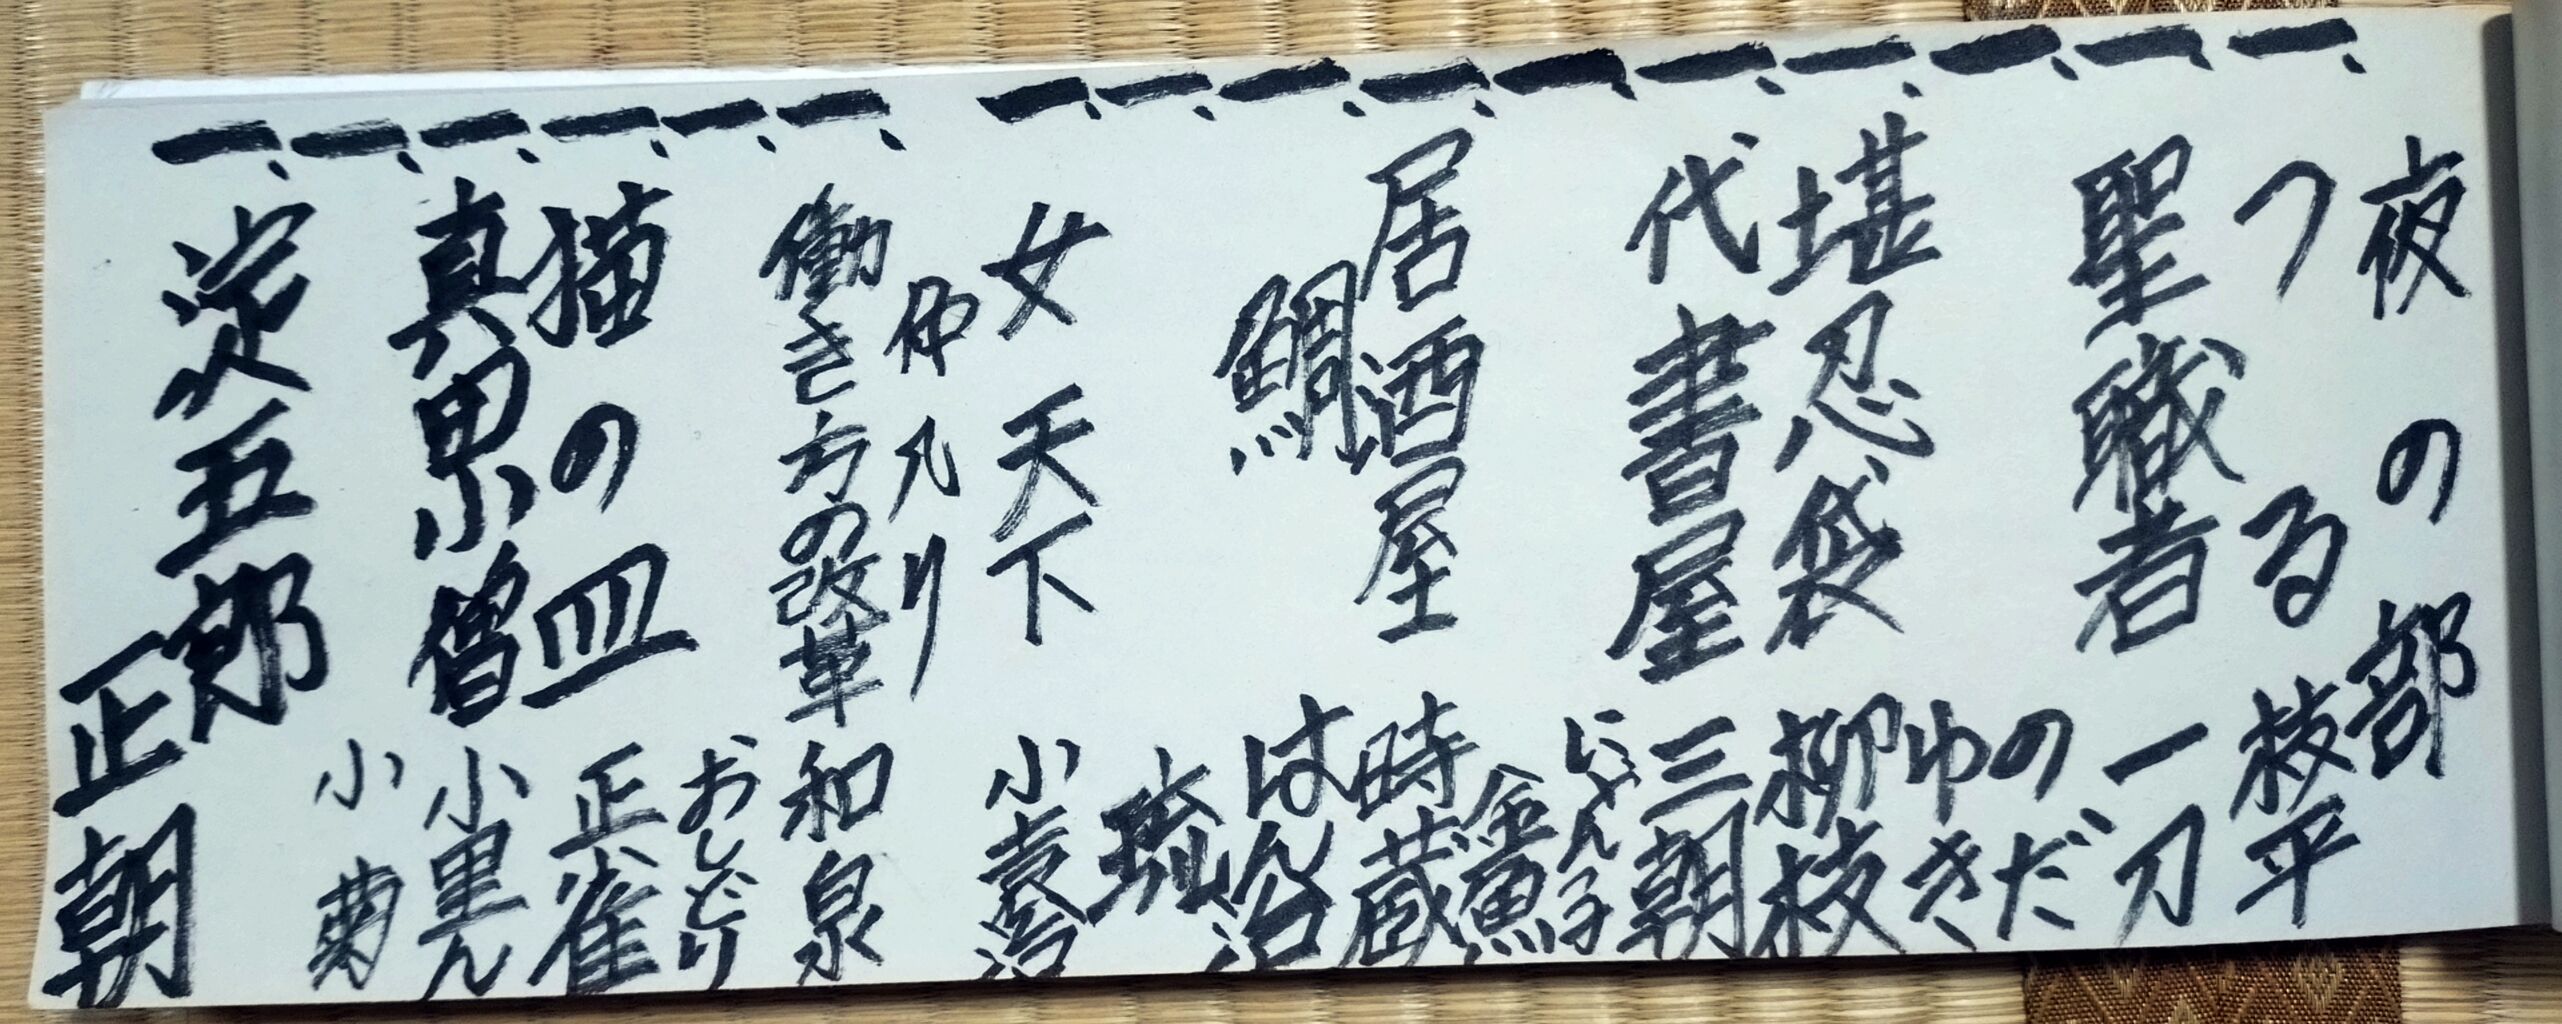 夜の部
一、つる 枝平
一、聖職者 一刀
一、のだゆき
一、堪忍袋 柳枝
一、代書屋 三朝
一、にゃん子金魚
一、居酒屋 時蔵
一、鯛 はん治
一、琉
一、女天下 小袁治
仲入り
一、働き方の改革 和泉
一、おしどり
一、猫の皿 正雀
一、真田小僧 小里ん
一、小菊
一、淀五郎 正朝